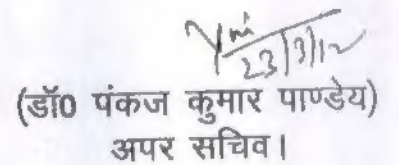 23/3/12
(डॉ0 पंकज कुमार पाण्डेय)
अपर सचिव।